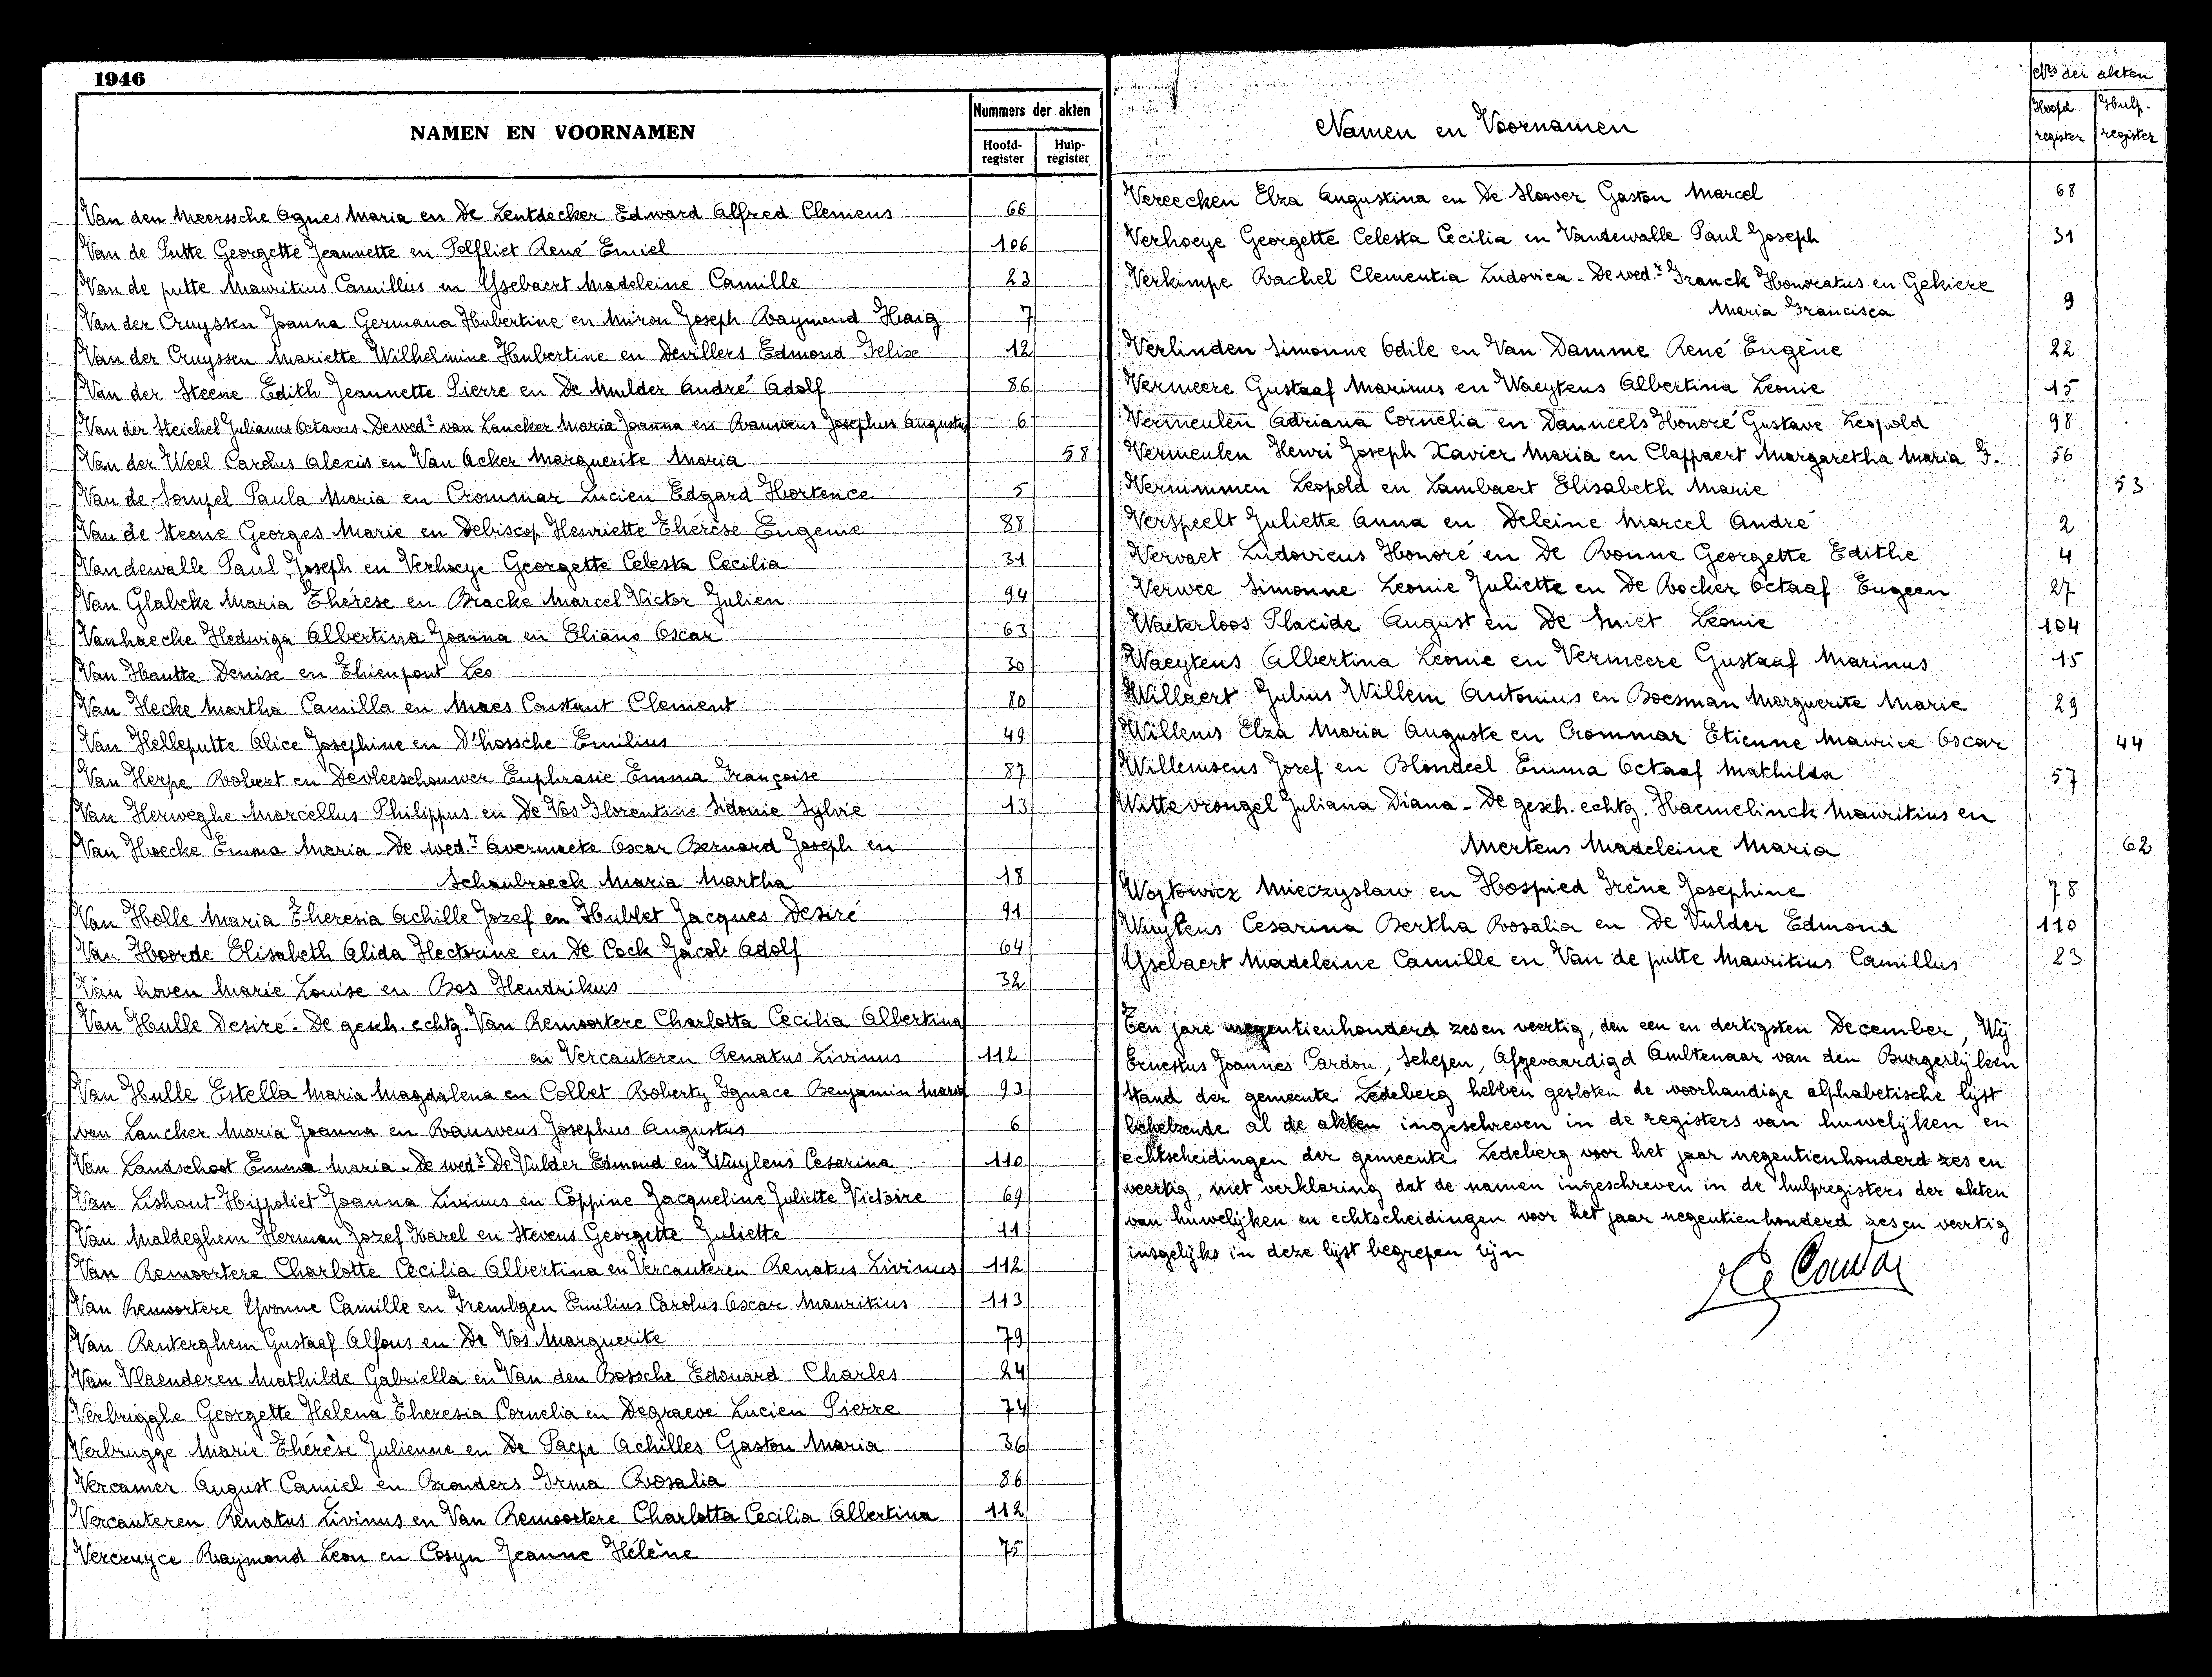 1946
NAMEN EN VOORNAMEN
Nummers der akten
Hoofd-register
Hulp-register
Van den Meerssche Agnes Maria en De Lentdecker Edward Alfred Clemens 66
Van de Putte Georgette Jeannette en Polfliet René Emiel 106
Van de putte Mauritius Camillus en Ysebaert Madeleine Camille 23
Van der Cruyssen Joanna Germana Hubertine en Miron Joseph Raymond Haig 7
Van der Cruyssen Mariette Wilhelmine Hubertine en Devillers Edmond Felix 12
Van der Steene Edith Jeannette Pierre en De Mulder André Adolf 86
Van der Steichel Julianus Octavus. De wedr van Lancker Maria Joanna en Rauwens Josephus Augustus 6
Van der Weel Carolus Alexis en Van Acker Marguerite Maria 58
Van de Sompel Paula Maria en Crommar Lucien Edgard Hortence 5
Van de Steene Georges Marie en Debiscop Henriette Thérèse Eugenie 88
Vandewalle Paul Joseph en Verhoeye Georgette Celesta Cecilia 31
Van Glabeke Maria Thérèse en Bracke Marcel Victor Julien 94
Vanhaecke Hedwiga Albertina Joanna en Eliano Oscar 63
Van Hautte Denise en Thienpont Leo 30
Van Hecke Martha Camilla en Maes Constant Clement 80
Van Helleputte Alice Josephine en D'hossche Emilius 49
Van Herpe Robert en Devleeschouwer Euphrasie Emma Françoise 87
Van Herweghe Marcellus Philippus en De Vos Florentine Sidonie Sylvie 13
Van Hoecke Emma Maria - De wed.r Avermaete Oscar Bernard Joseph en
Schaubroeck Maria Martha 18
Van Holle Maria Theresia Achille Jozef en Hublet Jacques Desiré 91
Van Hoorde Elisabeth Alida Hectorine en De Cock Jacob Adolf 64
Van hoven Marie Louise en Bos Hendrikus 32
Van Hulle Desiré - De gesch. echtg. Van Remoortere Charlotta Cecilia Albertina
en Vercauteren Renatus Livinus 112
Van Hulle Estella Maria Magdalena en Collet Roberty Ignace Benjamin Maria 93
van Lancker Maria Joanna en Rauwens Josephus Augustus 6
Van Landschoot Emma Maria - De wedr De Vulder Edmond en Wuytens Cesarina 110
Van Lishout Hippoliet Joanna Livinus en Coppine Jacqueline Juliette Victoire 69
Van Maldeghem Herman Jozef Karel en Stevens Georgette Juliette 11
Van Remoortere Charlotte Cecilia Albertina en Vercauteren Renatus Livinus 112
Van Remoortere Yvonne Camille en Trembgen Emilius Carolus Oscar Mauritius 113
Van Renterghem Gustaaf Alfons en De Vos Marguerite 79
Van Vlaenderen Mathilde Gabriella en Van den Bossche Edouard Charles 24
Verbrigghe Georgette Helena Theresia Cornelia en Degraeve Lucien Pierre 74
Verbrugge Marie Thérèse Julienne en De Paep Achilles Gaston Maria 36
Vercamer August Camiel en Branders Irma Rosalia 86
Vercauteren Renatus Livinus en Van Remoortere Charlotta Cecilia Albertina 112
Vercruyce Raymond Leon en Cosyn Jeanne Hélène 75
Namen en Voornamen
Nrs der akten
Hoofd register
Hulp-register
Vereecken Elza Augustina en De Hoover Gaston Marcel 68
Verhoeye Georgette Celesta Cecilia en Vandewalle Paul Joseph 31
Verkimpe Rachel Clementia Ludovica - De wed.r Franck Honoratus en Gekiere
Maria Francisca 9
Verlinden Simonne Odile en Van Damme René Eugène 22
Vermeere Gustaaf Marinus en Waeytens Albertina Leonie 15
Vermeulen Adriana Cornelia en Danneels Honoré Gustave Leopold 98
Vermeulen Henri Joseph Xavier Maria en Clappaert Margaretha Maria F. 56
Vernimmen Leopold en Lambaert Elisabeth Marie 53
Verspeelt Juliette Anna en Deleine Marcel André 2
Vervaet Ludovicus Honoré en De Ronne Georgette Edithe 4
Verwee Simonne Leonie Juliette en De Rocker Octaaf Eugeen 27
Waeterloos Placide August en De Smet Leonie 104
Waeytens Albertina Leonie en Vermeere Gustaaf Marinus 15
Willaert Julius Willem Antonius en Boesman Marguerite Marie 29
Willems Elza Maria Auguste en Crommar Etienne Maurice Oscar 44
Willemsens Jozef en Blondeel Emma Octaaf Mathilda 57
Wittevrongel Juliana Diana - De gesch. echtg. Haemelinck Mauritius en
Mertens Madeleine Maria 62
Wojtowicz Mieczyslaw en Hospied Irène Josephine 78
Wuytens Cesarina Bertha Rosalia en De Vulder Edmond 110
Ysebaert Madeleine Camille en Van de putte Mauritius Camillus 23
Ten jare negentienhonderd zes en veertig, den een en dertigsten December, Wij
Ernestus Joannes Cardon, Schepen, Afgevaardigd Ambtenaar van den Burgerlijken
Stand der gemeente Ledeberg hebben gesloten de voorhandige alphabetische lijst
behelzende al de akten ingeschreven in de registers van huwelijken en
echtscheidingen der gemeente Ledeberg voor het jaar negentienhonderd zes en
veertig, met verklaring dat de namen ingeschreven in de hulpregisters der akten
van huwelijken en echtscheidingen voor het jaar negentienhonderd zes en veertig
insgelijks in deze lijst begrepen zijn